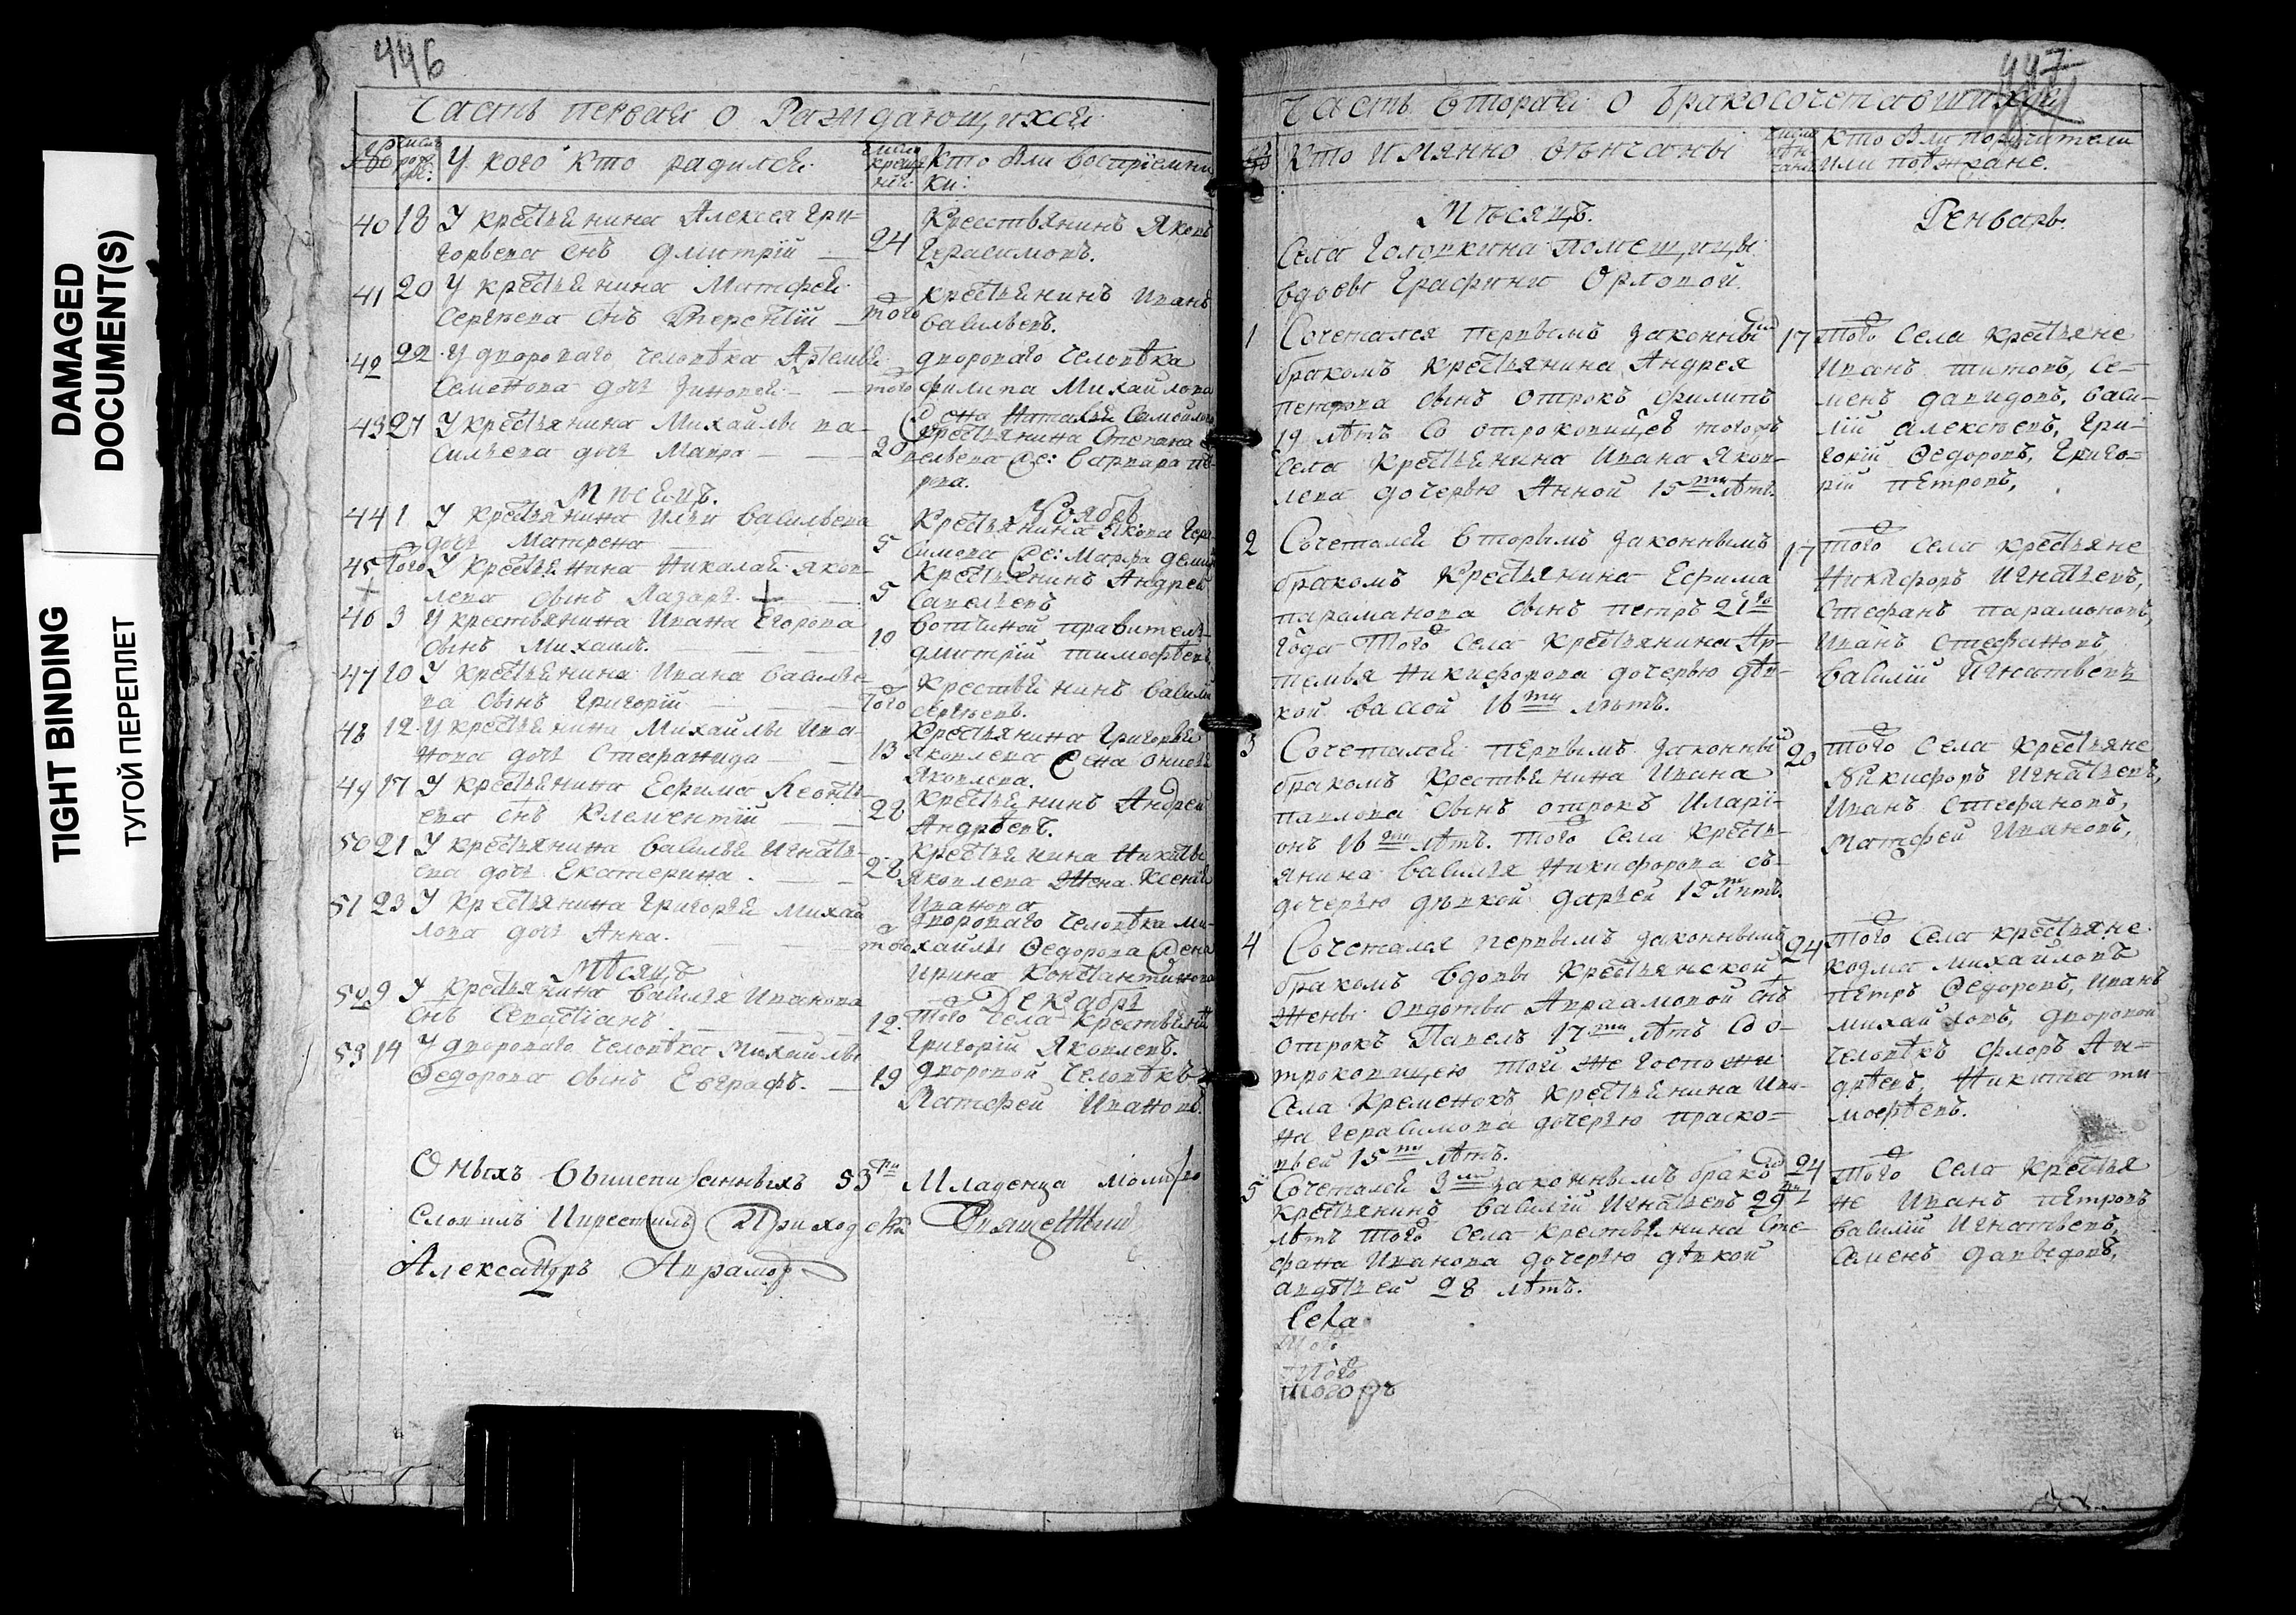 DAMAGED
DOCUMENT(S)
TIGHT BINDING
ТУГОЙ ПЕРЕПЛЕТ
446
Часть первая о Раждающихся
У кого кто радился
число крещения
Кто были восприемники:
40 18 У крестьянина Алексея Гри-
горьева снъ Дмитрiй
24
Крестьянинъ Яковъ
Герасимовъ.
41 20 У крестьянина Матфея
Сергѣева снъ Терентiй
того
крестьянинъ Иванъ
Васильевъ.
42 22 У двороваго человѣка Артемья
Семенова дочь Зиновья
того
двороваго человѣка
Филипа Михайлова
жена Наталья Самойлова
43 27 У крестьянина Михайлы Ва-
сильева дочь Мавра
крестьянина Степана
Мѣсяцъ. Ноябрь
44 1 У крестьянина Ильи Васильева
дочь Матрена
5
Крестьянина Якова Гера
симова же: Марфа
45 того У крестьянина Николая Яков-
лева сынъ Лазарь.
5
Крестьянинъ Андрей
Савельевъ
46 3 У крестьянина Ивана Егорова
сынъ Михаилъ.
10
вотчиной правитель
Дмитрiй Тимофѣевъ
47 10 У крестьянина Ивана Василье-
ва сынъ Григорiй
того
Крестьянинъ Василiй
Сергѣевъ.
48 12 У крестьянина Михайлы Ива-
нова дочь Стефанида
13
Крестьянина Григорья
Яковлева жена
Яковлева.
49 17 У крестьянина Ефима Леонть-
ева снъ Клементiй
22
Крестьянинъ Андрей
Андрѣевъ.
50 21 У крестьянина Василья Игнать-
ева дочь Екатерина.
28
Крестьянина Никиты
Яковлева жена Ксенiя
Иванова
51 23 У Крестьянина Григорья Михай
лова дочь Анна.
того
двороваго человѣка Ми-
хайлы Ѳедорова жена
Ирина Константинова
Мѣсяцъ Декабрь
52 9 У крестьянина Василья Иванова
снъ Севастiанъ
12.
того села крестьянинъ
Григорiй Яковлевъ.
53 14 У двороваго человѣка Михайлы
Ѳедорова сынъ Евграфъ.
19
дворовой человѣкъ
Матфей Ивановъ.
Оныхъ Вышеписанныхъ 53ти Младенца молитво
словилъ И крестилъ Приходскiй Священникъ
Александръ Аврамовъ
447
Часть Вторая о бракосочетавшихся
Кто имянно вѣнчаны
Кто были поручители
или поѣжжане.
Мѣсяцъ. Генварь.
Села Головкина Помещицы
вдовы Графини Орловой.
1 Сочетался первымъ законнымъ
бракомъ крестьянина Андрея
Петрова сынъ отрокъ Филипъ
19 лѣтъ Со отроковицею тогожъ
Села Крестьянина Ивана Яков-
лева дочерью Анной 15ти лѣтъ.
17
того Села крестьяне
Иванъ Титовъ, Се-
менъ Давидовъ, Васи-
лiй Алексѣевъ, Гри-
горiй Ѳедоровъ, Григо-
рiй Петровъ,
2 Сочетался вторымъ законнымъ
бракомъ Крестьянина Ефима
Параманова сынъ Петръ 21го
года того Села Крестьянина Ар-
темья Никифорова дочерью дѣв-
кой Вассой 16ти лѣтъ.
17
того села крестьяне
Никифоръ Игнатьевъ,
Стефанъ Парамоновъ,
Иванъ Стефановъ,
Василiй Игнатьевъ
3 Сочетался первымъ законнымъ
бракомъ Крестьянина Ивана
Павлова сынъ отрокъ Иларi-
онъ 16ти лѣтъ. того Села Кресть-
янина Василья Никифорова съ
дочерью дѣвкой Дарьей 15ти лѣтъ.
20
того Села Крестьяне
Никифоръ Игнатьевъ,
Иванъ Стефановъ,
Матфей Ивановъ,
4 Сочетался первымъ законнымъ
бракомъ вдовы Крестьянской
жены Авдотьи Авраамовой снъ
отрокъ Павелъ 17ти лѣтъ Со о-
троковицею той же Госпожи
Села Кременокъ Крестьянина Ива-
на Герасимова дочерью Праско-
вьей 15ти лѣтъ.
24
того Села крестьяне
Козма Михайловъ
Петръ Ѳедоровъ, Иванъ
Михайловъ, дворовой
человѣкъ Флоръ Ан-
дрѣевъ, Никита Ти-
мофѣевъ.
5 Сочетался 3мъ законнымъ бракомъ
Крестьянинъ Василiй Игнатьевъ 29ти
лѣтъ того Села Крестьянина Сте-
фана Иванова дочерью дѣвкой
Авдотьей 28 лѣтъ.
24
того Села Крестья
не Иванъ Петровъ
Василiй Игнатьевъ,
Семенъ Давыдовъ,
Села
того
тогожъ